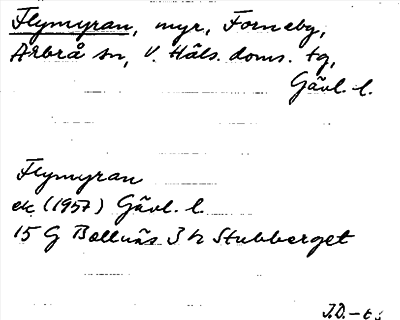 Flymyran, myr, Forneby,
Arbrå sn, V. Häls. doms. tg,
Gävl. l.
Flymyran
ek (1957) Gävl. l.
15 G Bollnäs 3 h Stubberget
J.D.-t